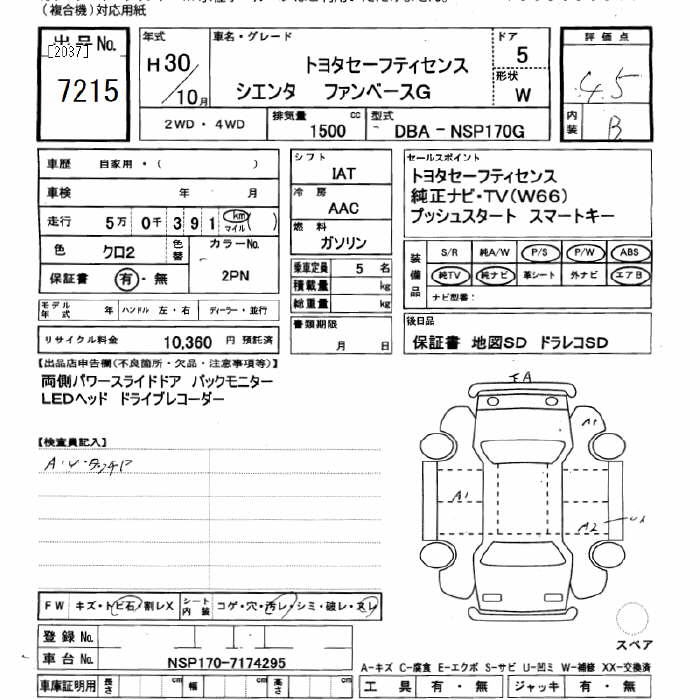 (複合機)対応用紙
出品No.
[2037]
7215
年式
H30/10月
車名・グレード
トヨタセーフティセンス
シエンタ ファンベースG
ドア
5
形状
W
評価点
4.5
内装
B
2WD・4WD
排気量
1500 cc
型式
DBA - NSP170G
車歴 自家用・( )
車検 年 月
走行 5万 0千 391 (km マイル)
色 クロ2
色替
カラーNo.
2PN
保証書 有・無
モデル年式 年 ハンドル 左・右 ディーラー・並行
リサイクル料金 10,360 円 預託済
シフト
IAT
冷房
AAC
燃料
ガソリン
乗車定員 5 名
積載量 kg
総重量 kg
書類期限
月 日
セールスポイント
トヨタセーフティセンス
純正ナビ・TV(W66)
プッシュスタート スマートキー
装備品
S/R 純A/W P/S P/W ABS
純TV 純ナビ 革シート 外ナビ エアB
ナビ型番:
後日品
保証書 地図SD ドラレコSD
【出品店申告欄(不良箇所・欠品・注意事項等)】
両側パワースライドドア バックモニター
LEDヘッド ドライブレコーダー
【検査員記入】
FW キズ・トビ石・割レX
シート内装 コゲ・穴・汚レ・シミ・破レ・スレ
登録No.
車台No. NSP170-7174295
車庫証明用 長さ cm 幅 cm 高さ cm
A1
A1
A2
スペア
A-キズ C-腐食 E-エクボ S-サビ U-凹ミ W-補修 XX-交換済
工具 有・無 ジャッキ 有・無